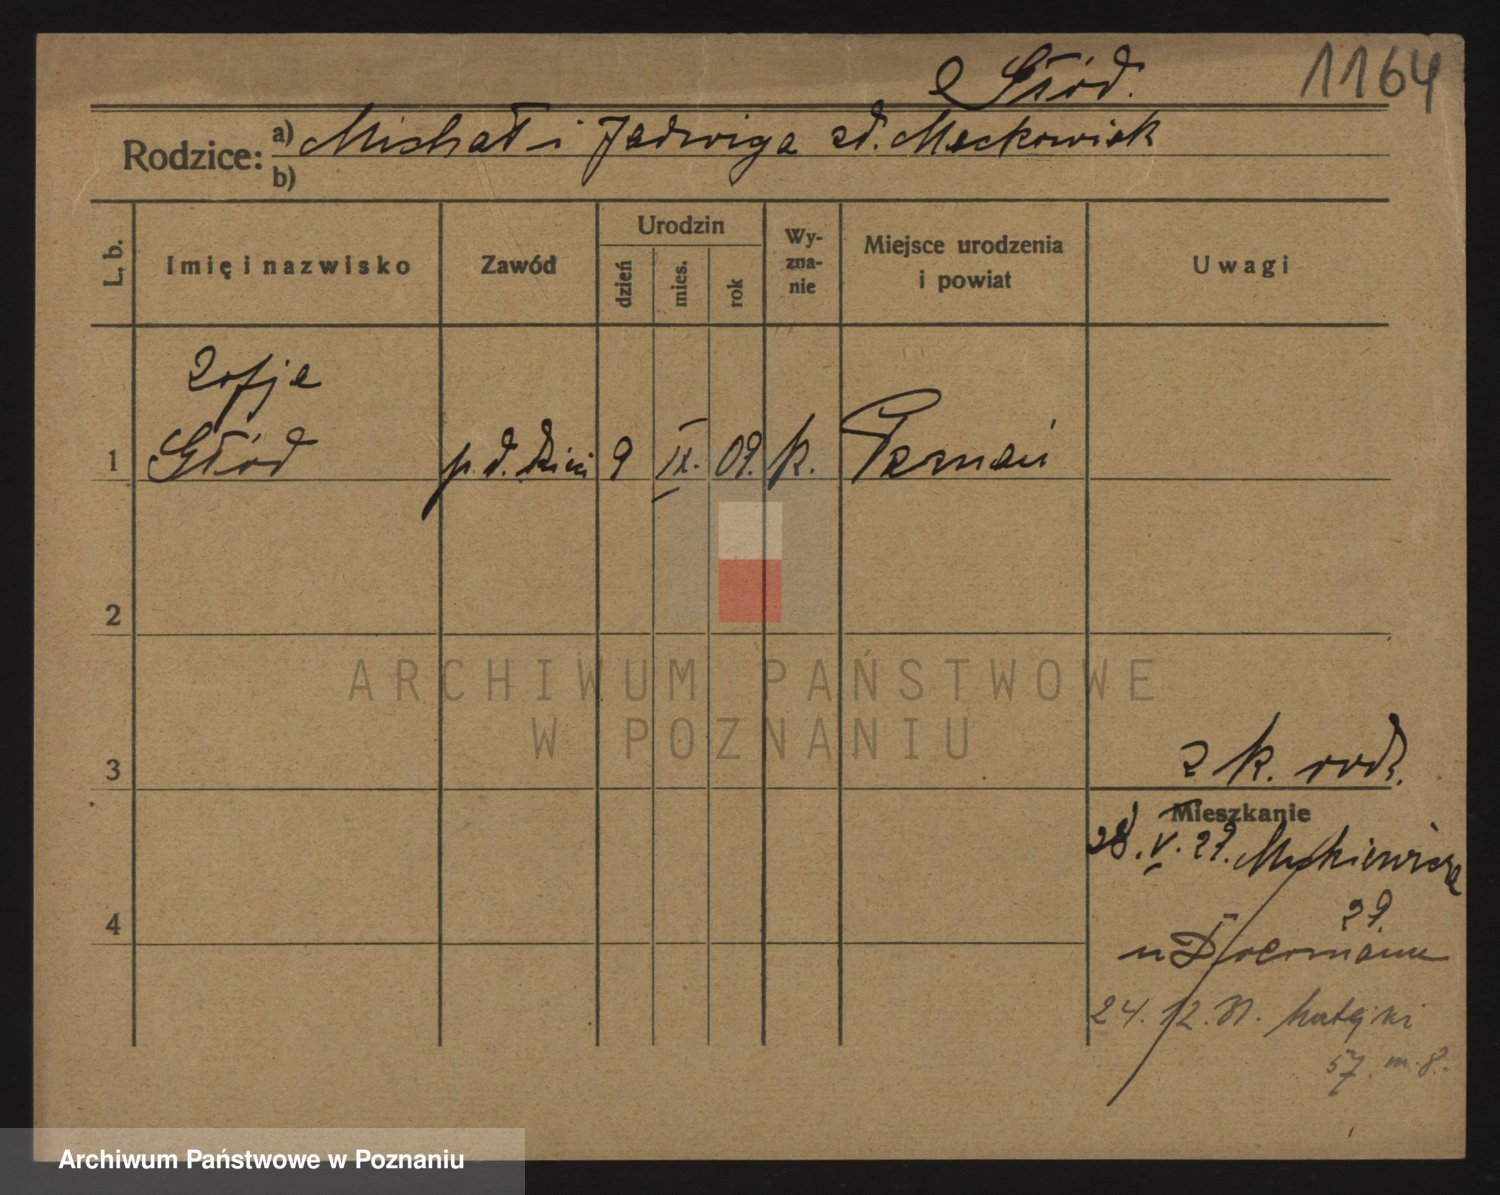 1164
Głód.
Rodzice:
a) Michał i Jadwiga zd. Maćkowiak
b)
L. b.
Imię i nazwisko
Zawód
Urodzin
dzień
mies.
rok
Wy-
zna-
nie
Miejsce urodzenia
i powiat
Uwagi
Zofja
1 Głód p. d. dzieci 9 IX. 09. k. Poznań
2
ARCHIWUM PAŃSTWOWE
W POZNANIU
3
z k. rodz.
Mieszkanie
28. V. 29. Mickiewicza
29.
4
u
24. 12. 31. Matejki
57. m. 8.
Archiwum Państwowe w Poznaniu